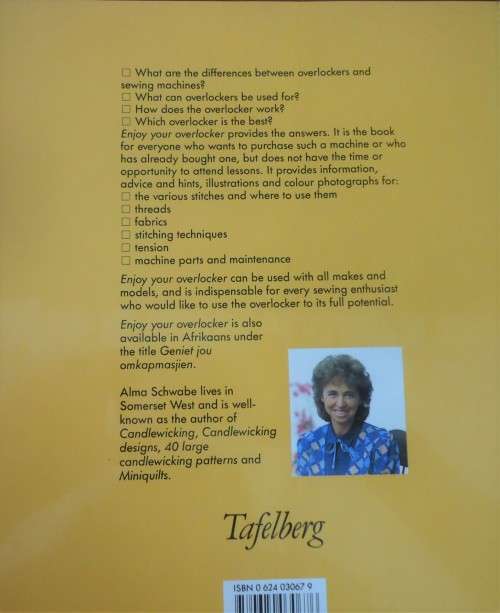 ☐ What are the differences between overlockers and
sewing machines?
☐ What can overlockers be used for?
☐ How does the overlocker work?
☐ Which overlocker is the best?
Enjoy your overlocker provides the answers. It is the book
for everyone who wants to purchase such a machine or who
has already bought one, but does not have the time or
opportunity to attend lessons. It provides information,
advice and hints, illustrations and colour photographs for:
☐ the various stitches and where to use them
☐ threads
☐ fabrics
☐ stitching techniques
☐ tension
☐ machine parts and maintenance
Enjoy your overlocker can be used with all makes and
models, and is indispensable for every sewing enthusiast
who would like to use the overlocker to its full potential.
Enjoy your overlocker is also
available in Afrikaans under
the title Geniet jou
omkapmasjien.
Alma Schwabe lives in
Somerset West and is well-
known as the author of
Candlewicking, Candlewicking
designs, 40 large
candlewicking patterns and
Miniquilts.
Tafelberg
ISBN 0 624 03067 9